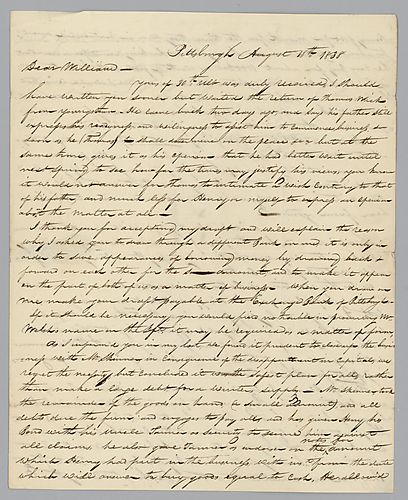 Pittsburgh August 11th 1838
Dear William —
yours of 30th Ult was duly received, I should
have written you sooner but waited the return of Thomas Wick
from Youngstown. He came back two days ago, and says his father still
expresses his readiness and willingness to assist him to commence business so
soon as he (Thomas) shall determine on the place &c but at the
same time, gives it as his opinion that he had better wait until
next Spring to see how far the times may justify his views, you know
it would not answer for Thomas to intimate a wish contrary to that
of his father, and much less for Henry or myself to express an opinion
abt the matter at all —
I thank you for accepting my draft and will explain the reason
why I asked you to draw through a different Bank on me, it is only in
order to save appearances of borrowing money by drawing back &
forward on each other for the same amount, and to make it appear
on the part of both of us as a matter of business. When you draw on
me make your draft payable at the Exchange Bank of Pittsburgh —
If it should be necessary you would find no trouble in procuring Mr
Webb's name on the dft. it may be required as a matter of form
As I informed you in my last we found it prudent to close up the busi
ness with Mr. Skinner in consequence of the disappointment in Capital, we
regret the necessity, but considered it the safest plan for all, rather
than make a large debt for a winters supply — Mr Skinner took
the remainder of the goods on hand (a small amount) and all
debts due the firm and engages to pay all, and has given Henry his
Bond with his Uncle James as security to secure him against
all claims, he also gave James as endorser on the notes for amount
which Henry had part in the business with int. from the date
which will answer to buy goods equal to Cash, He all